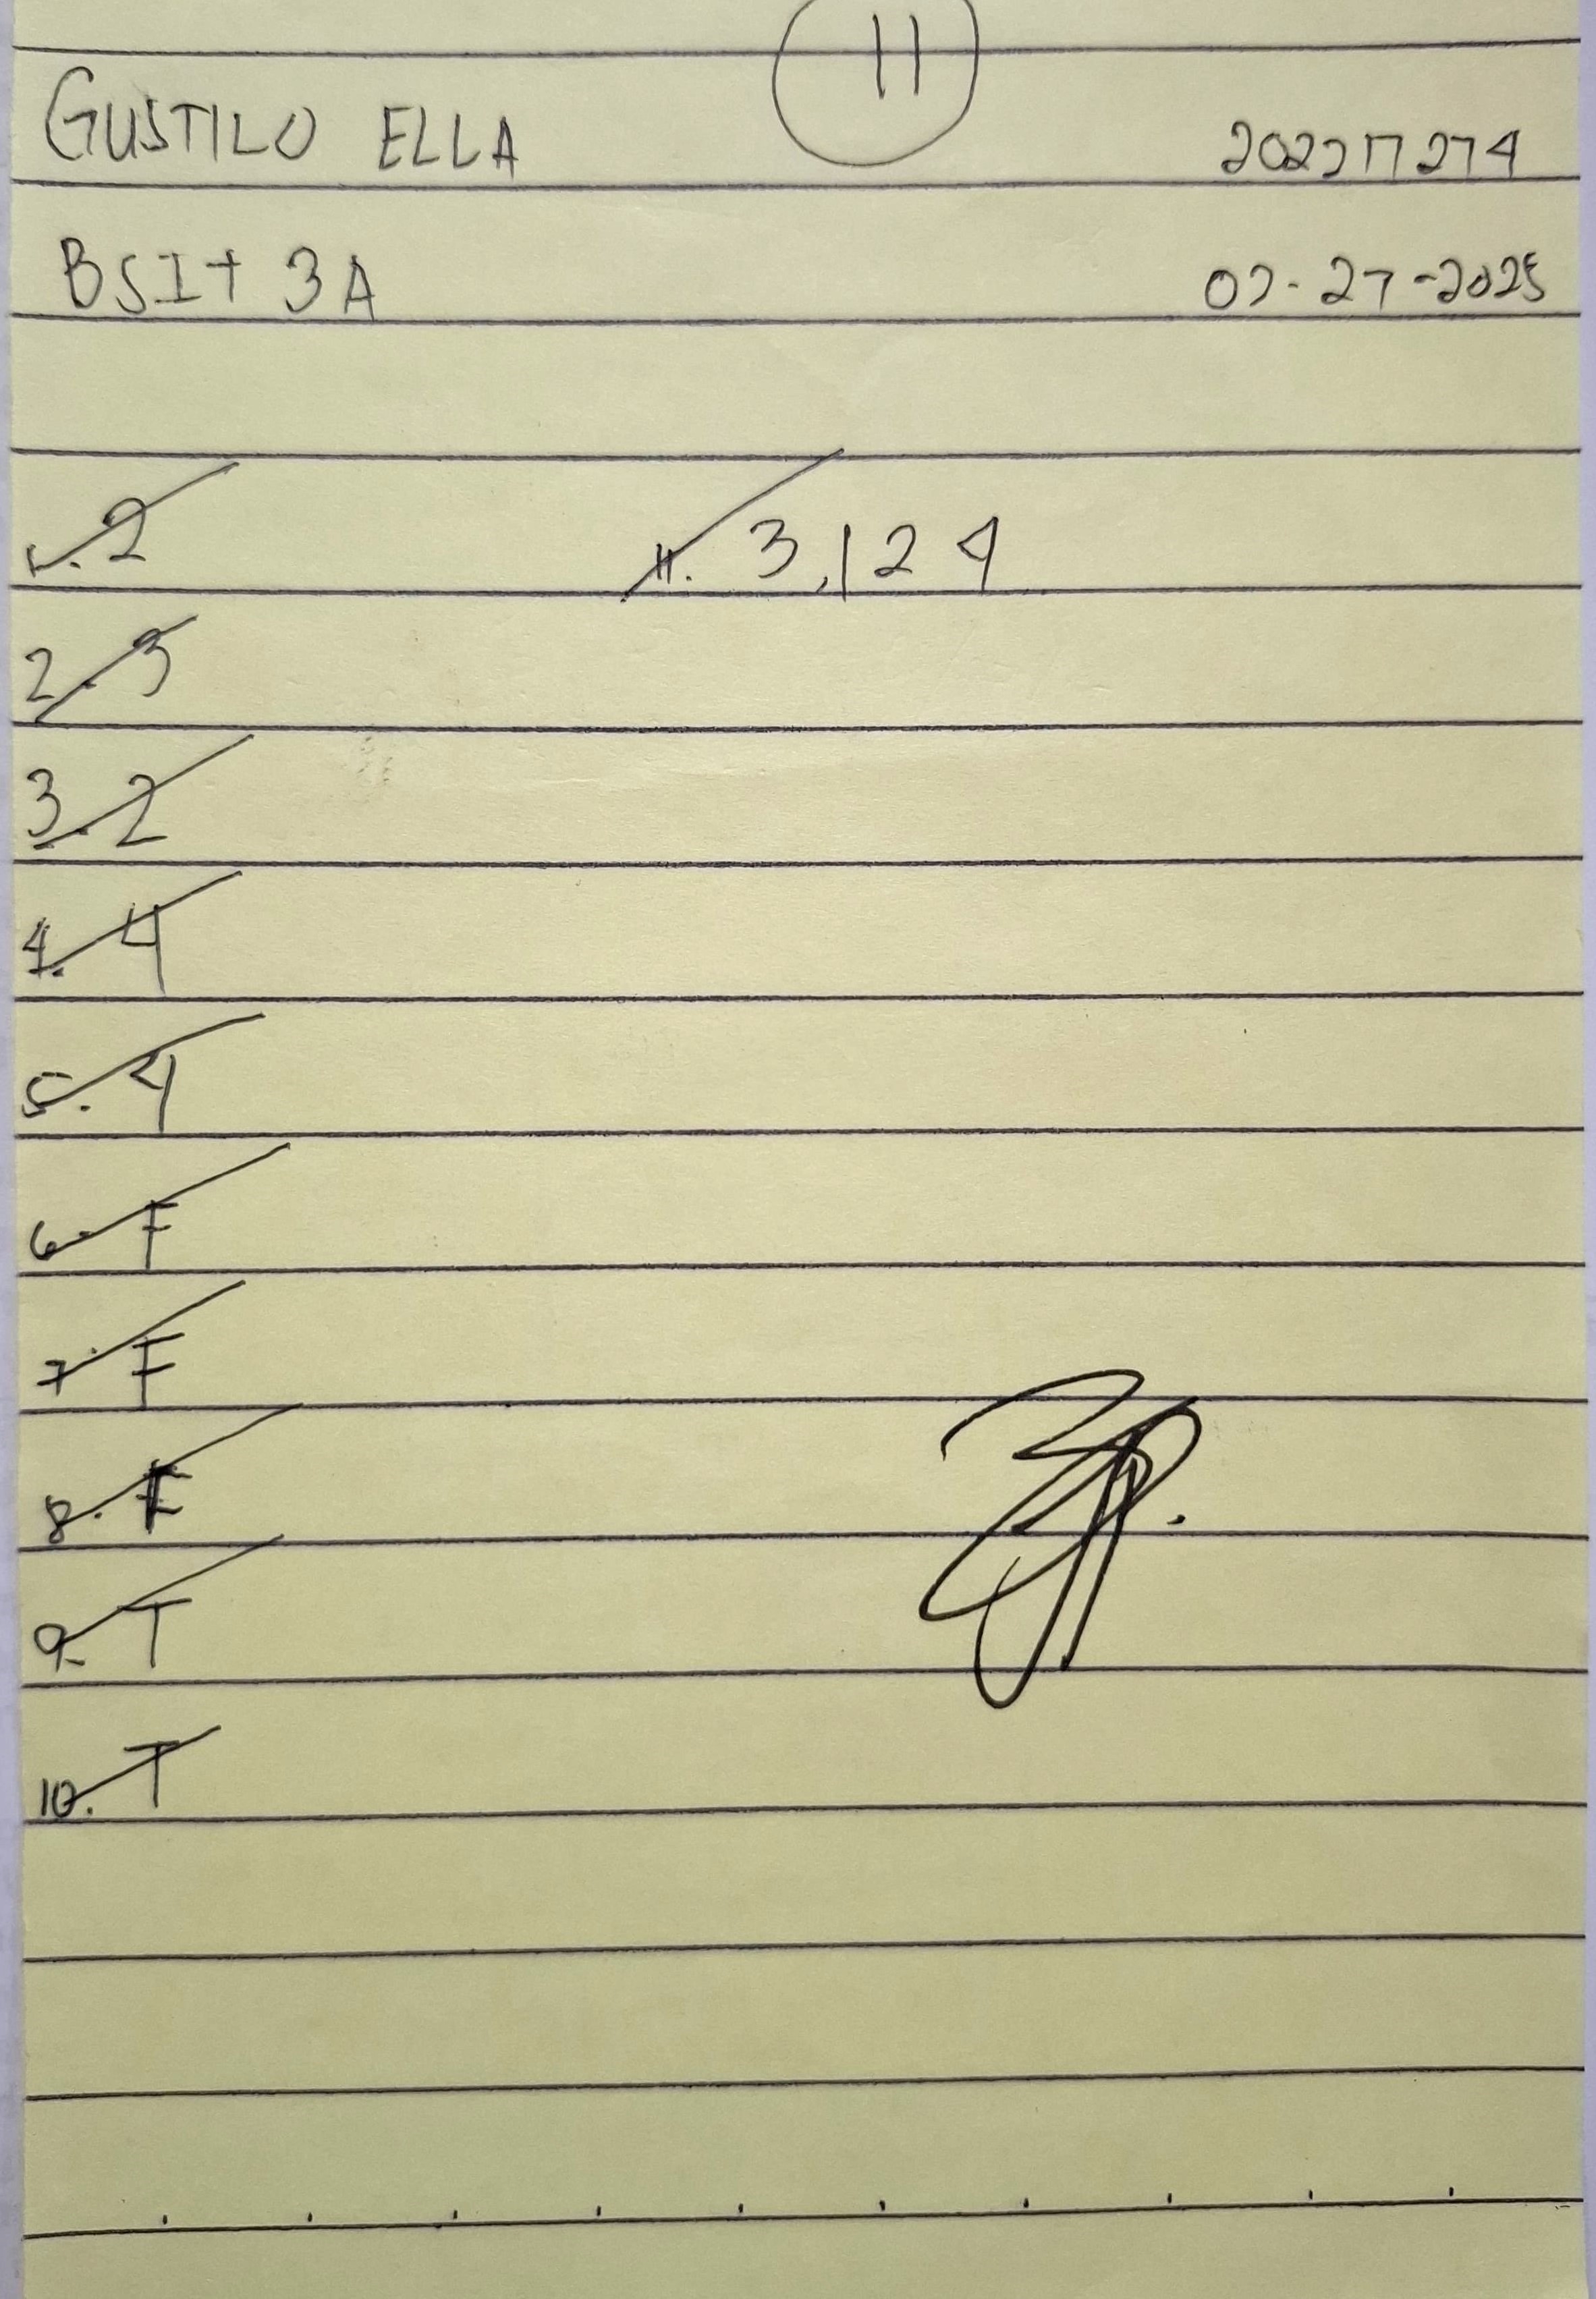 11
GUSTILO ELLA 202217274
BSIT 3A 02-27-2025
1. 2 11. 3,124
2. 3
3. 2
4. 4
5. 4
6. F
7. F
8. F
9. T
10. T